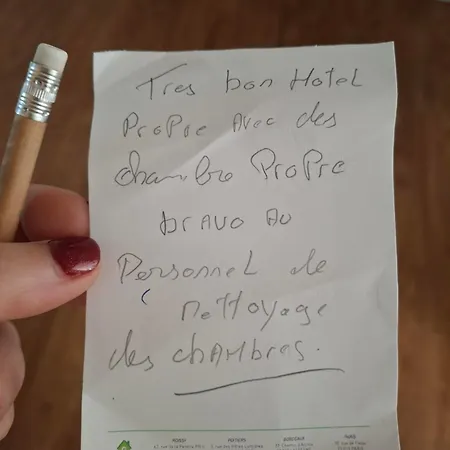 Tres bon Hotel
Propre Avec des
chambre Propre
bravo au
Personnel de
nettoyage
des chambres.
ROISSY POITIERS BORDEAUX PARIS